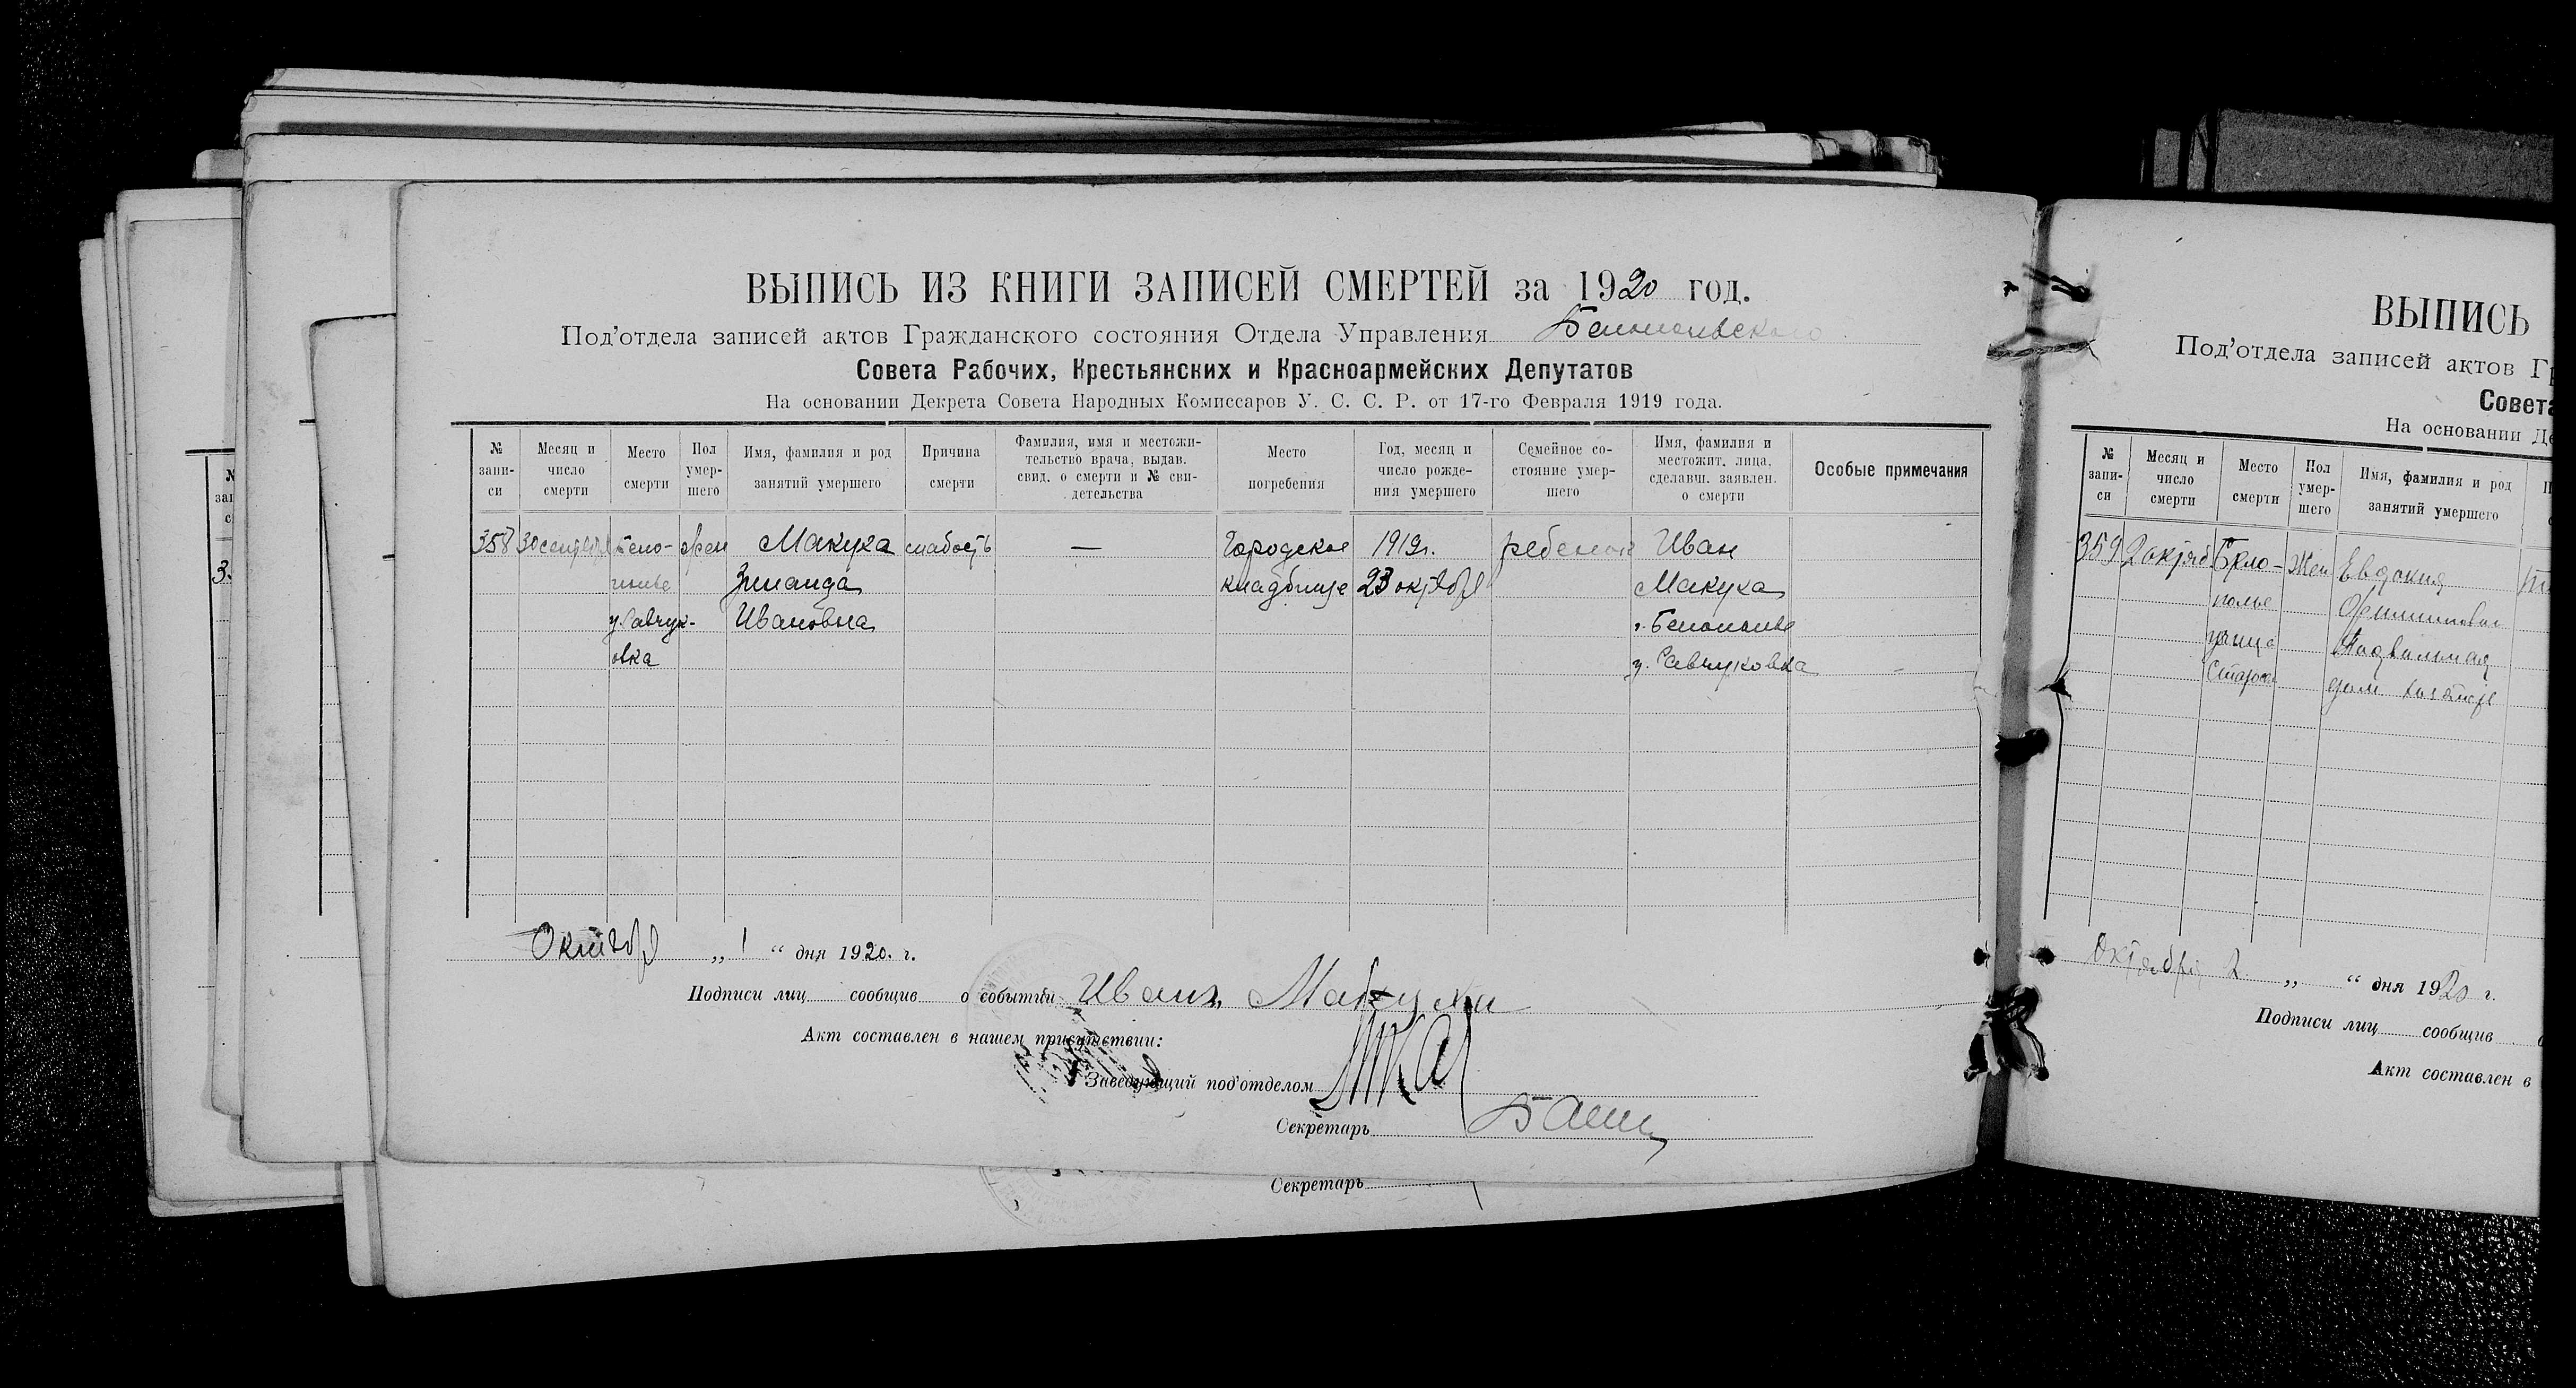 ВЫПИСЬ ИЗ КНИГИ ЗАПИСЕЙ СМЕРТЕЙ за 1920 год.
Под'отдела записей актов Гражданского состояния Отдела Управления Белопольского
Совета Рабочих, Крестьянских и Красноармейских Депутатов
На основании Декрета Совета Народных Комиссаров У. С. С. Р. от 17-го Февраля 1919 года.
№ запи-си
Месяц и число смерти
Место смерти
Пол умер-шего
Имя, фамилия и род занятий умершего
Причина смерти
Фамилия, имя и местожи-тельство врача, выдав. свид. о смерти и № сви-детельства
Место погребения
Год, месяц и число рожде-ния умершего
Семейное со-стояние умер-шего
Имя, фамилия и местожит. лица, сделавш. заявлен. о смерти
Особые примечания
358 30 сентября Бело- жен Макуха слабость — Городское 1919г. ребенок Иван
полье Зинаида кладбище 23 октября Макуха
у. Савчук- Ивановна г. Белополье
овка у. Савчуковка
Октября „ 1 “ дня 1920. г.
Подписи лиц сообщив о событии Иванъ Макуха
Акт составлен в нашем присутствии:
Заведующий под'отделом
Секретарь
Секретарь
ВЫПИСЬ
Под'отдела записей актов Г
Совета
На основании Де
№ запи-си
Месяц и число смерти
Место смерти
Пол умер-шего
Имя, фамилия и род занятий умершего
359 2 октяб Бело- Жен Евдокия
полье
улица
Старая дом хозяйст
Октября 2 „ “ дня 1920 г.
Подписи лиц сообщив
Акт составлен в